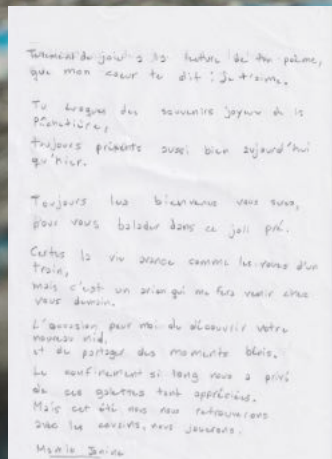 Tellement de joie à la lecture de ton poème,
que mon coeur te dit : Je t'aime.
Tu évoques des souvenirs joyeux de la
toujours présents aussi bien aujourd'hui
qu'hier.
Toujours les bienvenus vous serez,
pour vous balader dans ce joli pré.
Certes la vie avance comme les roues d'un
train,
mais c'est un avion qui me fera venir chez
vous demain.
L'occasion pour moi de découvrir votre
nouveau nid,
et de partager des moments bénis.
Le confinement si long nous a privé
de ces galettes tant appréciées.
Mais cet été nous nous retrouverons
avec les cousins, nous jouerons.
Mamie Janine